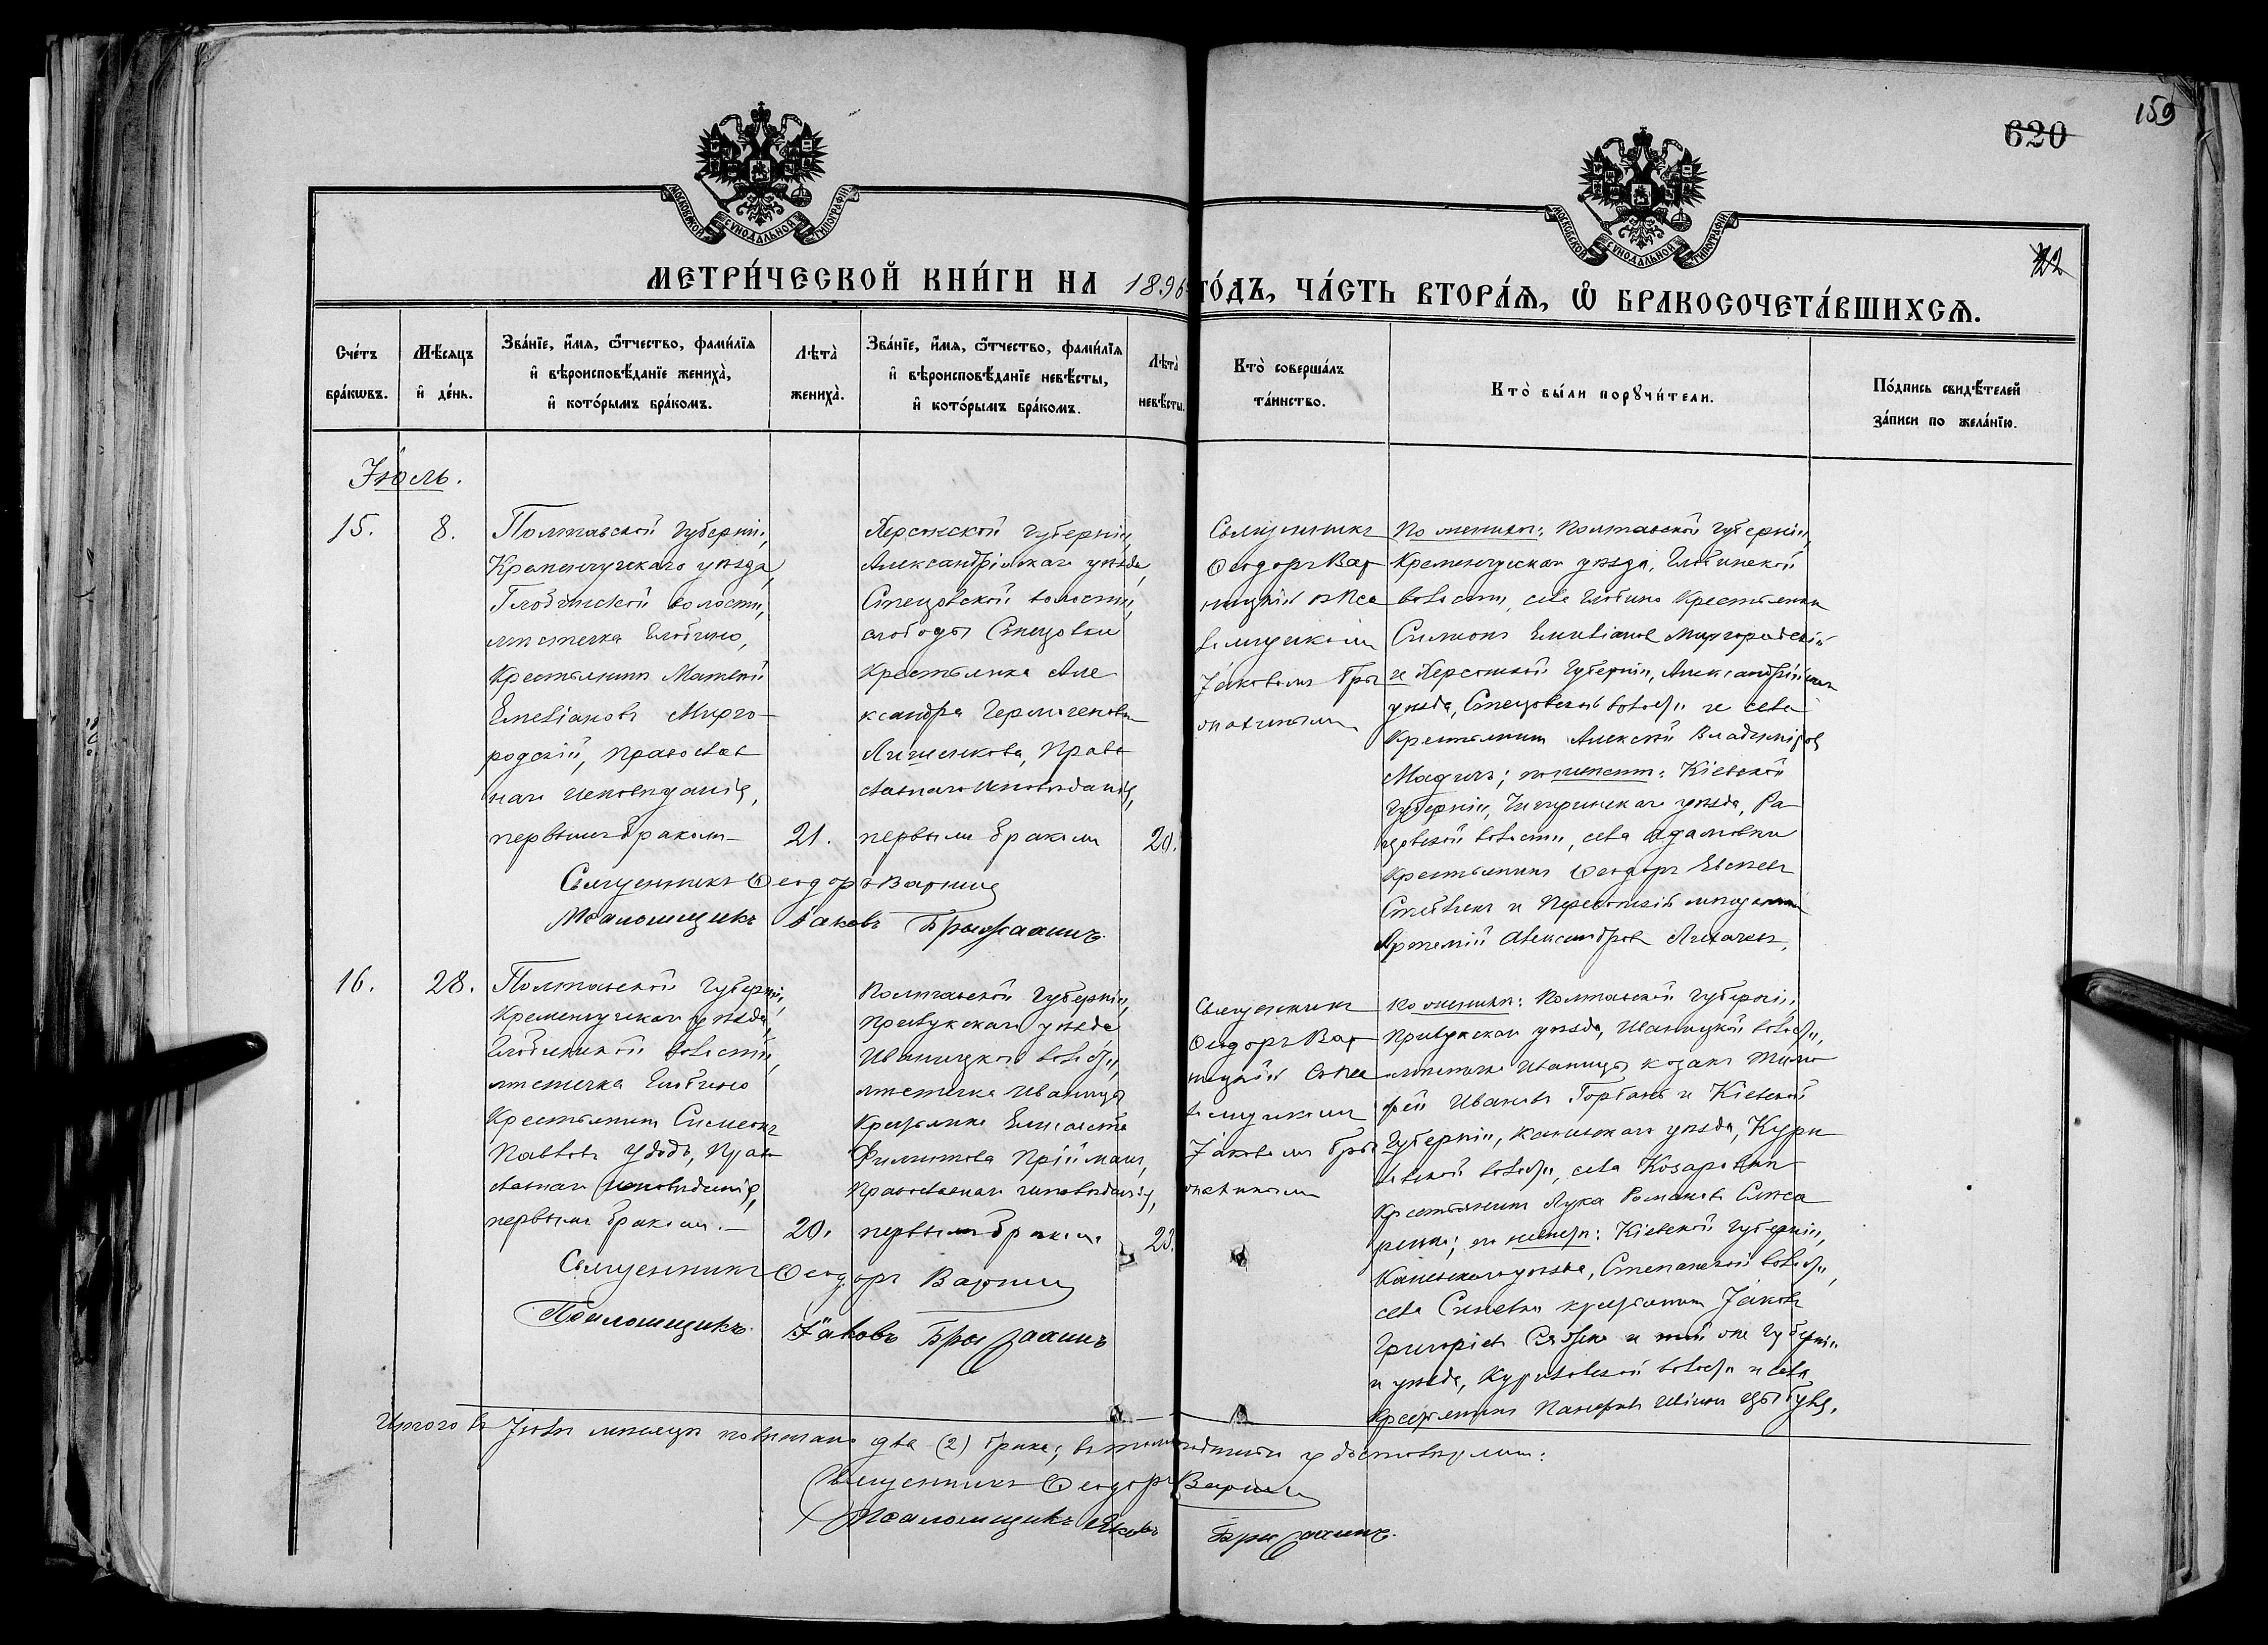 159
620
22
МОСКОВСКОЙ СѴНОДАЛЬНОЙ ТИПОГРАФІИ
МОСКОВСКОЙ СѴНОДАЛЬНОЙ ТИПОГРАФІИ
МЕТРИ́ЧЕСКОЙ КНИ́ГИ НА 1896
ГО́ДЪ, ЧА́СТЬ ВТОРА́Ѧ, Ѡ҆ БРАКОСОЧЕТА́ВШИХСѦ.
Сче́тъ бра́кѡвъ.
Мѣ́сѧцъ и҆ де́нь.
Зва́нїе, и҆́мѧ, ѻ҆́тчество, фами́лїѧ и҆ вѣроисповѣ́данїе жениха̀, и҆ кото́рымъ бра́комъ.
Лѣта̀ жениха̀.
Зва́нїе, и҆́мѧ, ѻ҆́тчество, фами́лїѧ и҆ вѣроисповѣ́данїе невѣ́сты, и҆ кото́рымъ бра́комъ.
Лѣта̀ невѣ́сты.
Кто̀ соверша́лъ та́инство.
Кто̀ бы́ли порꙋчи́тели.
По́дпись свидѣ́телей за́писи по жела́нїю.
Іюль.
15.
8.
Полтавской губерніи,
Кременчугскаго уѣзда,
Глобинской волости,
мѣстечка Глобино,
Крестьянинъ Матѳей
Емеліановъ Мирго-
родскій, православ
наго исповѣданія,
первымъ бракомъ
21.
Херсонской губерніи,
Александрійскаго уѣзда,
Стецовской волости,
слободы Стецовки
Крестьянка Але
ксандра
Право
славнаго исповѣданія,
первымъ бракомъ
20.
Священникъ
Ѳеодоръ Вар
ницкій съ Пса
ломщикомъ
Іаковомъ Бры
По женихѣ: Полтавской губерніи,
Кременчугскаго уѣзда, Глобинской
волости, села Глобино Крестьянинъ
Симеонъ Емеліановъ Миргородскій
и Херсонской губерніи, Александрійскаго
уѣзда, Стецовской волости и села
Крестьянинъ Алексѣй Владиміровъ
по невѣстѣ: Кіевской
губерніи, Чигиринскаго уѣзда, Ра
цевской волости, села Адамовки
Крестьянинъ Ѳеодоръ Евсѣевъ
и Херсонскій мѣщанинъ
Артемій Александровъ
Священникъ Ѳеодоръ Варниц
Псаломщикъ Іаковъ
16.
28.
Полтавской губерніи,
Кременчугскаго уѣзда,
Глобинской волости,
мѣстечка Глобино
Крестьянинъ Симеонъ
Павловъ Удодъ, Право
славнаго исповѣданія,
первымъ бракомъ.
20.
Полтавской губерніи,
Прилукскаго уѣзда
Иваницкой волости,
мѣстечка Иваницы
Крестьянка Елисавета
Филиппова Прійма
Православнаго исповѣданія,
первымъ бракомъ
23.
Священникъ
Ѳеодоръ Вар
ницкій съ Пса
ломщикомъ
Іаковомъ Бры
По женихѣ: Полтавской губерніи,
Прилукскаго уѣзда, Иваницкой волости,
мѣстечка Иваницы козакъ Тимо
фей Ивановъ Горбань и Кіевской
губерніи, Каневскаго уѣзда, Кури
ловской волости, села Козаровки
Крестьянинъ Лука Романовъ Слюса
ренко; по невѣстѣ: Кіевской губерніи,
Каневскаго уѣзда, Степанской волости,
села Синевки крестьянинъ Іаковъ
Григоріевъ и той же губерніи
и уѣзда, Куриловской волости и села
Крестьянинъ
Священникъ Ѳеодоръ Варниц
Псаломщикъ Іаковъ
Итого въ Іюлѣ мѣсяцѣ повѣнчано два (2) брака;
Священникъ Ѳеодоръ Варниц
Псаломщикъ Іаковъ